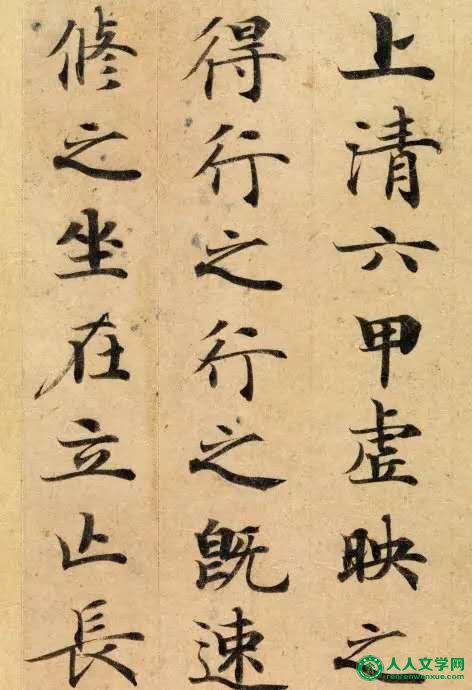 上清六甲虚映之
得行之行之既速
修之坐在立亡長
人人文学网
renrenwanxue.com